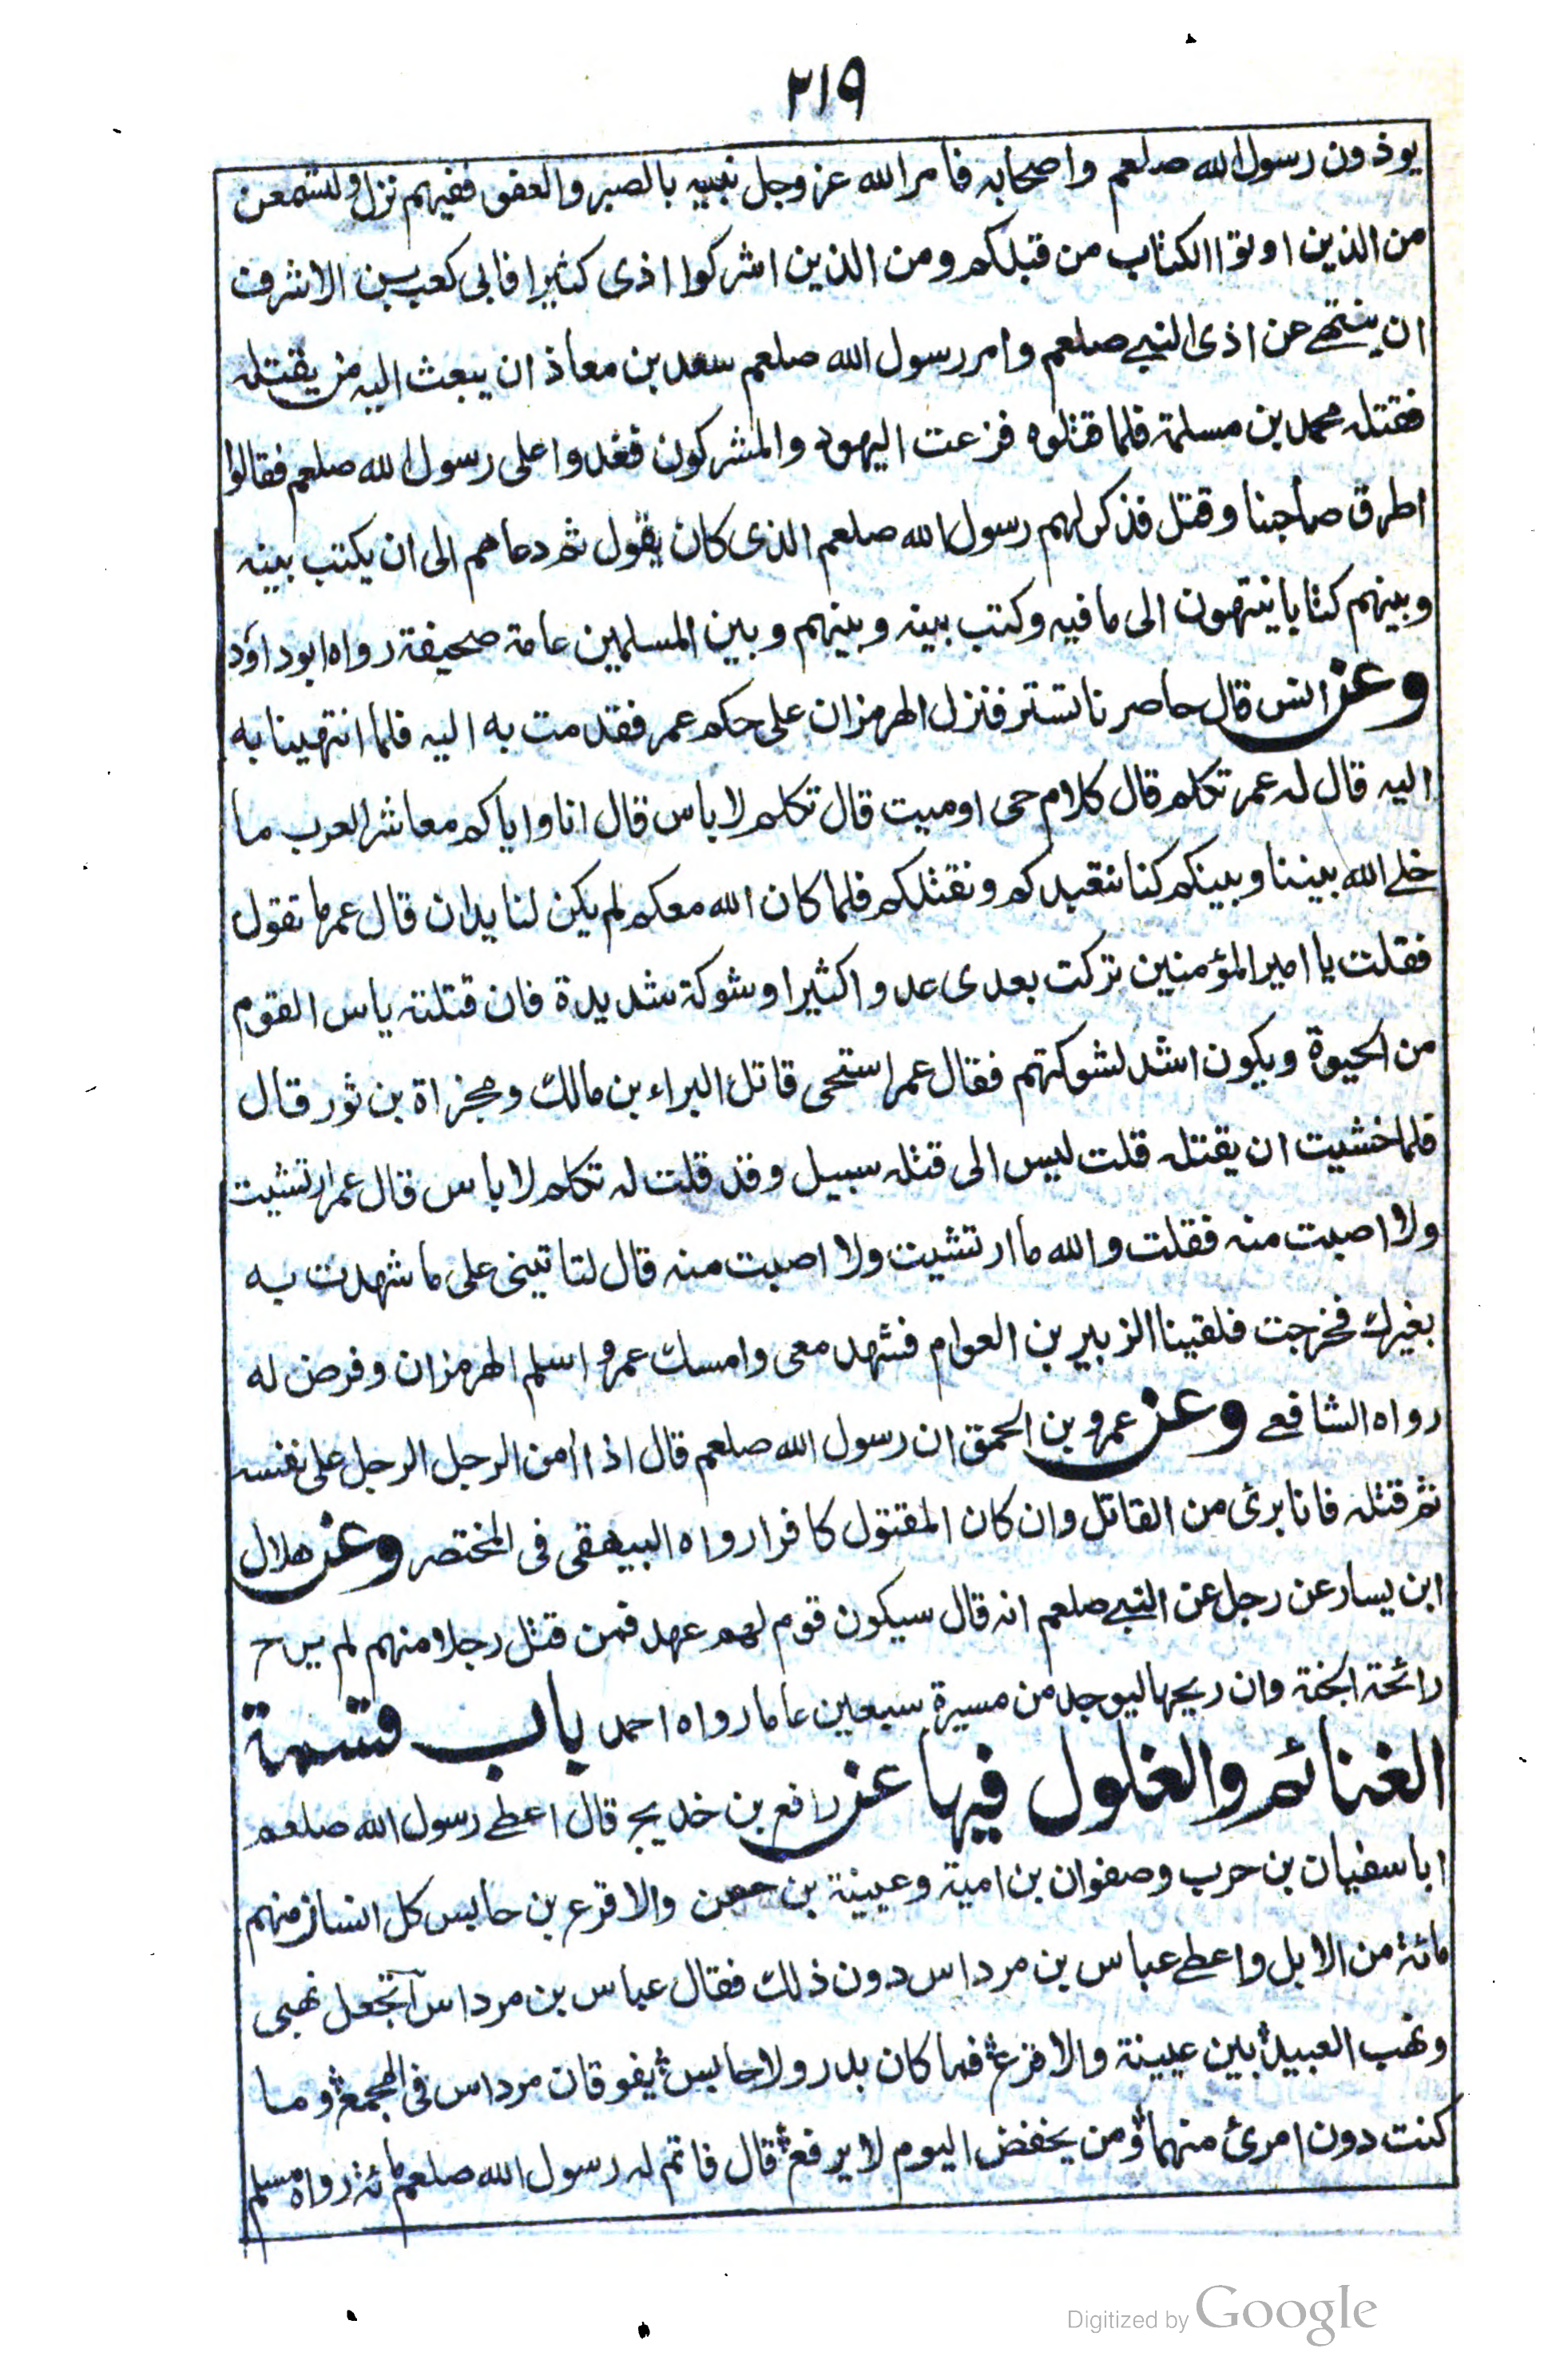 ٢١٩
يوذون رسول الله صلعم واصحابه فامر الله عزوجل نبيه بالصبر والعفو ففيهم نزل ولتسمعن
من الذين اوتوا الكتاب من قبلكم ومن الذين اشركوا اذى كثيرا فابى كعب بن الاشرف
ان ينتهے عن اذى النبے صلعم وامر رسول الله صلعم سعد بن معاذ ان يبعث اليه من يقتله
فقتله محمد بن مسلمة فلما قتلوه فزعت اليهود والمشركون فغدوا على رسول الله صلعم فقالوا
اطرق صاحبنا وقتل فذكر لهم رسول الله صلعم الذى كان يقول ثم دعاهم الى ان يكتب بينه
وبينهم كتابا ينتهون الى ما فيه وكتب بينه وبينهم وبين المسلمين عامة صحيفة رواه ابو داؤد
وعن انس قال حاصرنا تستر فنزل الهرمزان على حكم عمر فقدمت به اليه فلما انتهينا به
اليه قال له عمر تكلم قال كلام حى اوميت قال تكلم لا باس قال انا واياكم معاشر العرب ما
خلے الله بيننا وبينكم كنا نتعبدكم ونقتلكم فلما كان الله معكم لم يكن لنا يدان قال عمر ما تقول
فقلت يا امير المؤمنين تركت بعدى عدوا كثيرا وشوكة شديدة فان قتلته ياس القوم
من الحيوة ويكون اشد لشوكتهم فقال عمر استحى قاتل البراء بن مالك ومجزاة بن ثور قال
فلما خشيت ان يقتله قلت ليس الى قتله سبيل وقد قلت له تكلم لا باس قال عمر ارتشيت
ولا اصبت منه فقلت والله ما ارتشيت ولا اصبت منه قال لتاتينى على ما شهدت به
بغيرك فخرجت فلقينا الزبير بن العوام فشهد معى وامسك عمر واسلم الهرمزان وفرض له
رواه الشافعے وعن عمرو بن الحمق ان رسول الله صلعم قال اذا امن الرجل الرجل على نفسه
ثم قتله فانا برئ من القاتل وان كان المقتول كافرا رواه البيهقى فى المختصر وعن هلال
ابن يسار عن رجل عن النبے صلعم انه قال سيكون قوم لهم عهد فمن قتل رجلا منهم لم يرح
رائحة الجنة وان ريحها ليوجد من مسيرة سبعين عاما رواه احمد باب قسمة
الغنائم والغلول فيها عن رافع بن خديج قال اعطے رسول الله صلعم
ابا سفيان بن حرب وصفوان بن امية وعيينة بن حصن والاقرع بن حابس كل انسان منهم
مائة من الابل واعطے عباس بن مرداس دون ذلك فقال عباس بن مرداس اتجعل نهبى
ونهب العبيد بين عيينة والاقرع فما كان بدر ولا حابس يفوقان مرداس فى المجمع وما
كنت دون امرئ منهما ومن يخفض اليوم لا يرفع قال فاتم له رسول الله صلعم مائة رواه مسلم
Digitized by Google